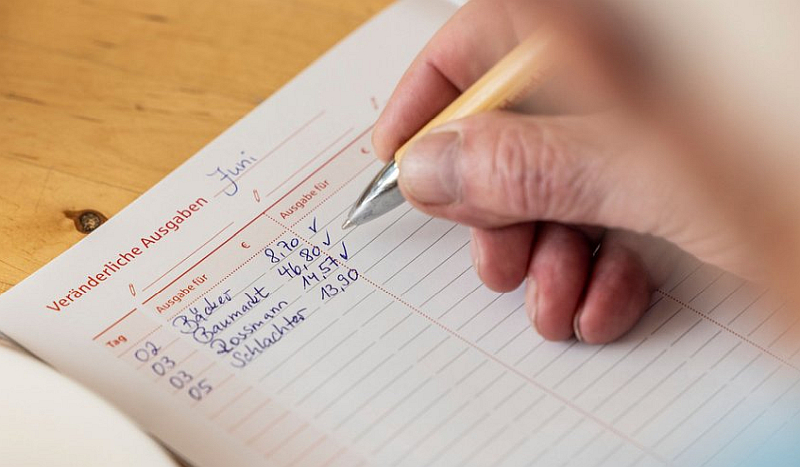 Veränderliche Ausgaben Juni
Tag Ausgabe für € Ausgabe für €
02 Bäcker 8,70 ✓
03 Baumarkt 46,80 ✓
03 Rossmann 14,57 ✓
05 Schlachter 13,90